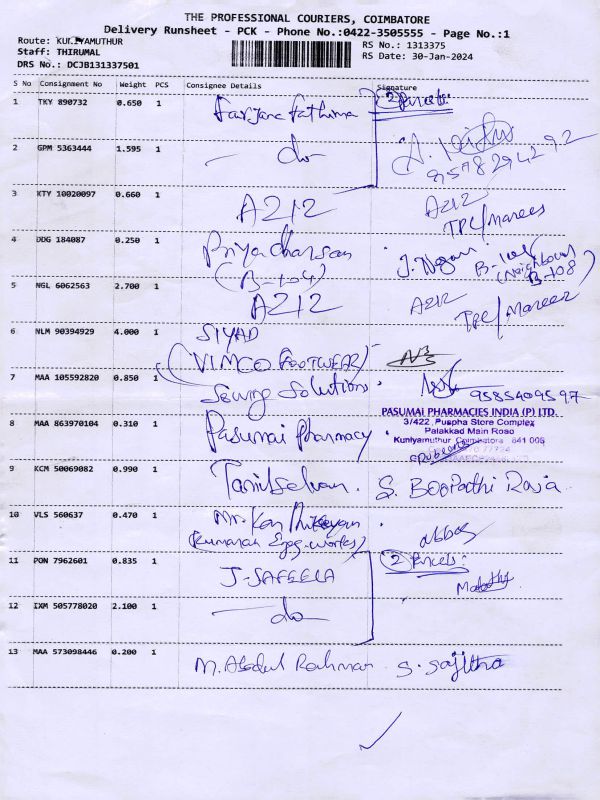 THE PROFESSIONAL COURIERS, COIMBATORE
Delivery Runsheet - PCK - Phone No.:0422-3505555 - Page No.:1
Route: KUNIYAMUTHUR
Staff: THIRUMAL
DRS No.: DCJB131337501
RS No.: 1313375
RS Date: 30-Jan-2024
S No Consignment No Weight PCS Consignee Details Signature
1 TKY 890732 0.650 1 Farjana fathima 2 Parcels
2 GPM 5363444 1.595 1 do
9578294292
3 KTY 10020097 0.660 1 A212 A212
TPC/Marees
4 DDG 184087 0.250 1 Priyadharsan
(B-104) (Neighbour)
B-108
5 NGL 6062563 2.700 1 A212 A212
TPC/Mareez
6 NLM 90394929 4.000 1 SIYAD
(VIMCO FOOTWEAR)
7 MAA 105592820 0.850 1 Sewing Solutions. 9585409597
PASUMAI PHARMACIES INDIA (P) LTD.
3/422, Puspha Store Complex
Palakkad Main Road
Kuniyamuthur, Coimbatore 641 008
8 MAA 863970104 0.310 1 Pasumai Pharmacy.
9 KCM 50069082 0.990 1 Tamilselvan. S. BooPathi Raja
10 VLS 560637 0.470 1 Mr. Karthikeyan
(Kumaran Engg. works) abbas
11 PON 7962601 0.835 1 J-SAFEELA 2 Parcels:
12 IXM 505778020 2.100 1 do
13 MAA 573098446 0.200 1 M. Abdul Rahman S. Sajitha